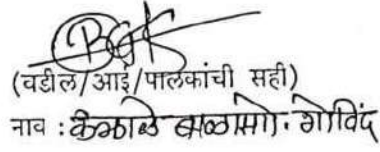 BGK
(वडील/आई/पालकांची सही)
नाव : कांबळे बाळासो. गोविंद